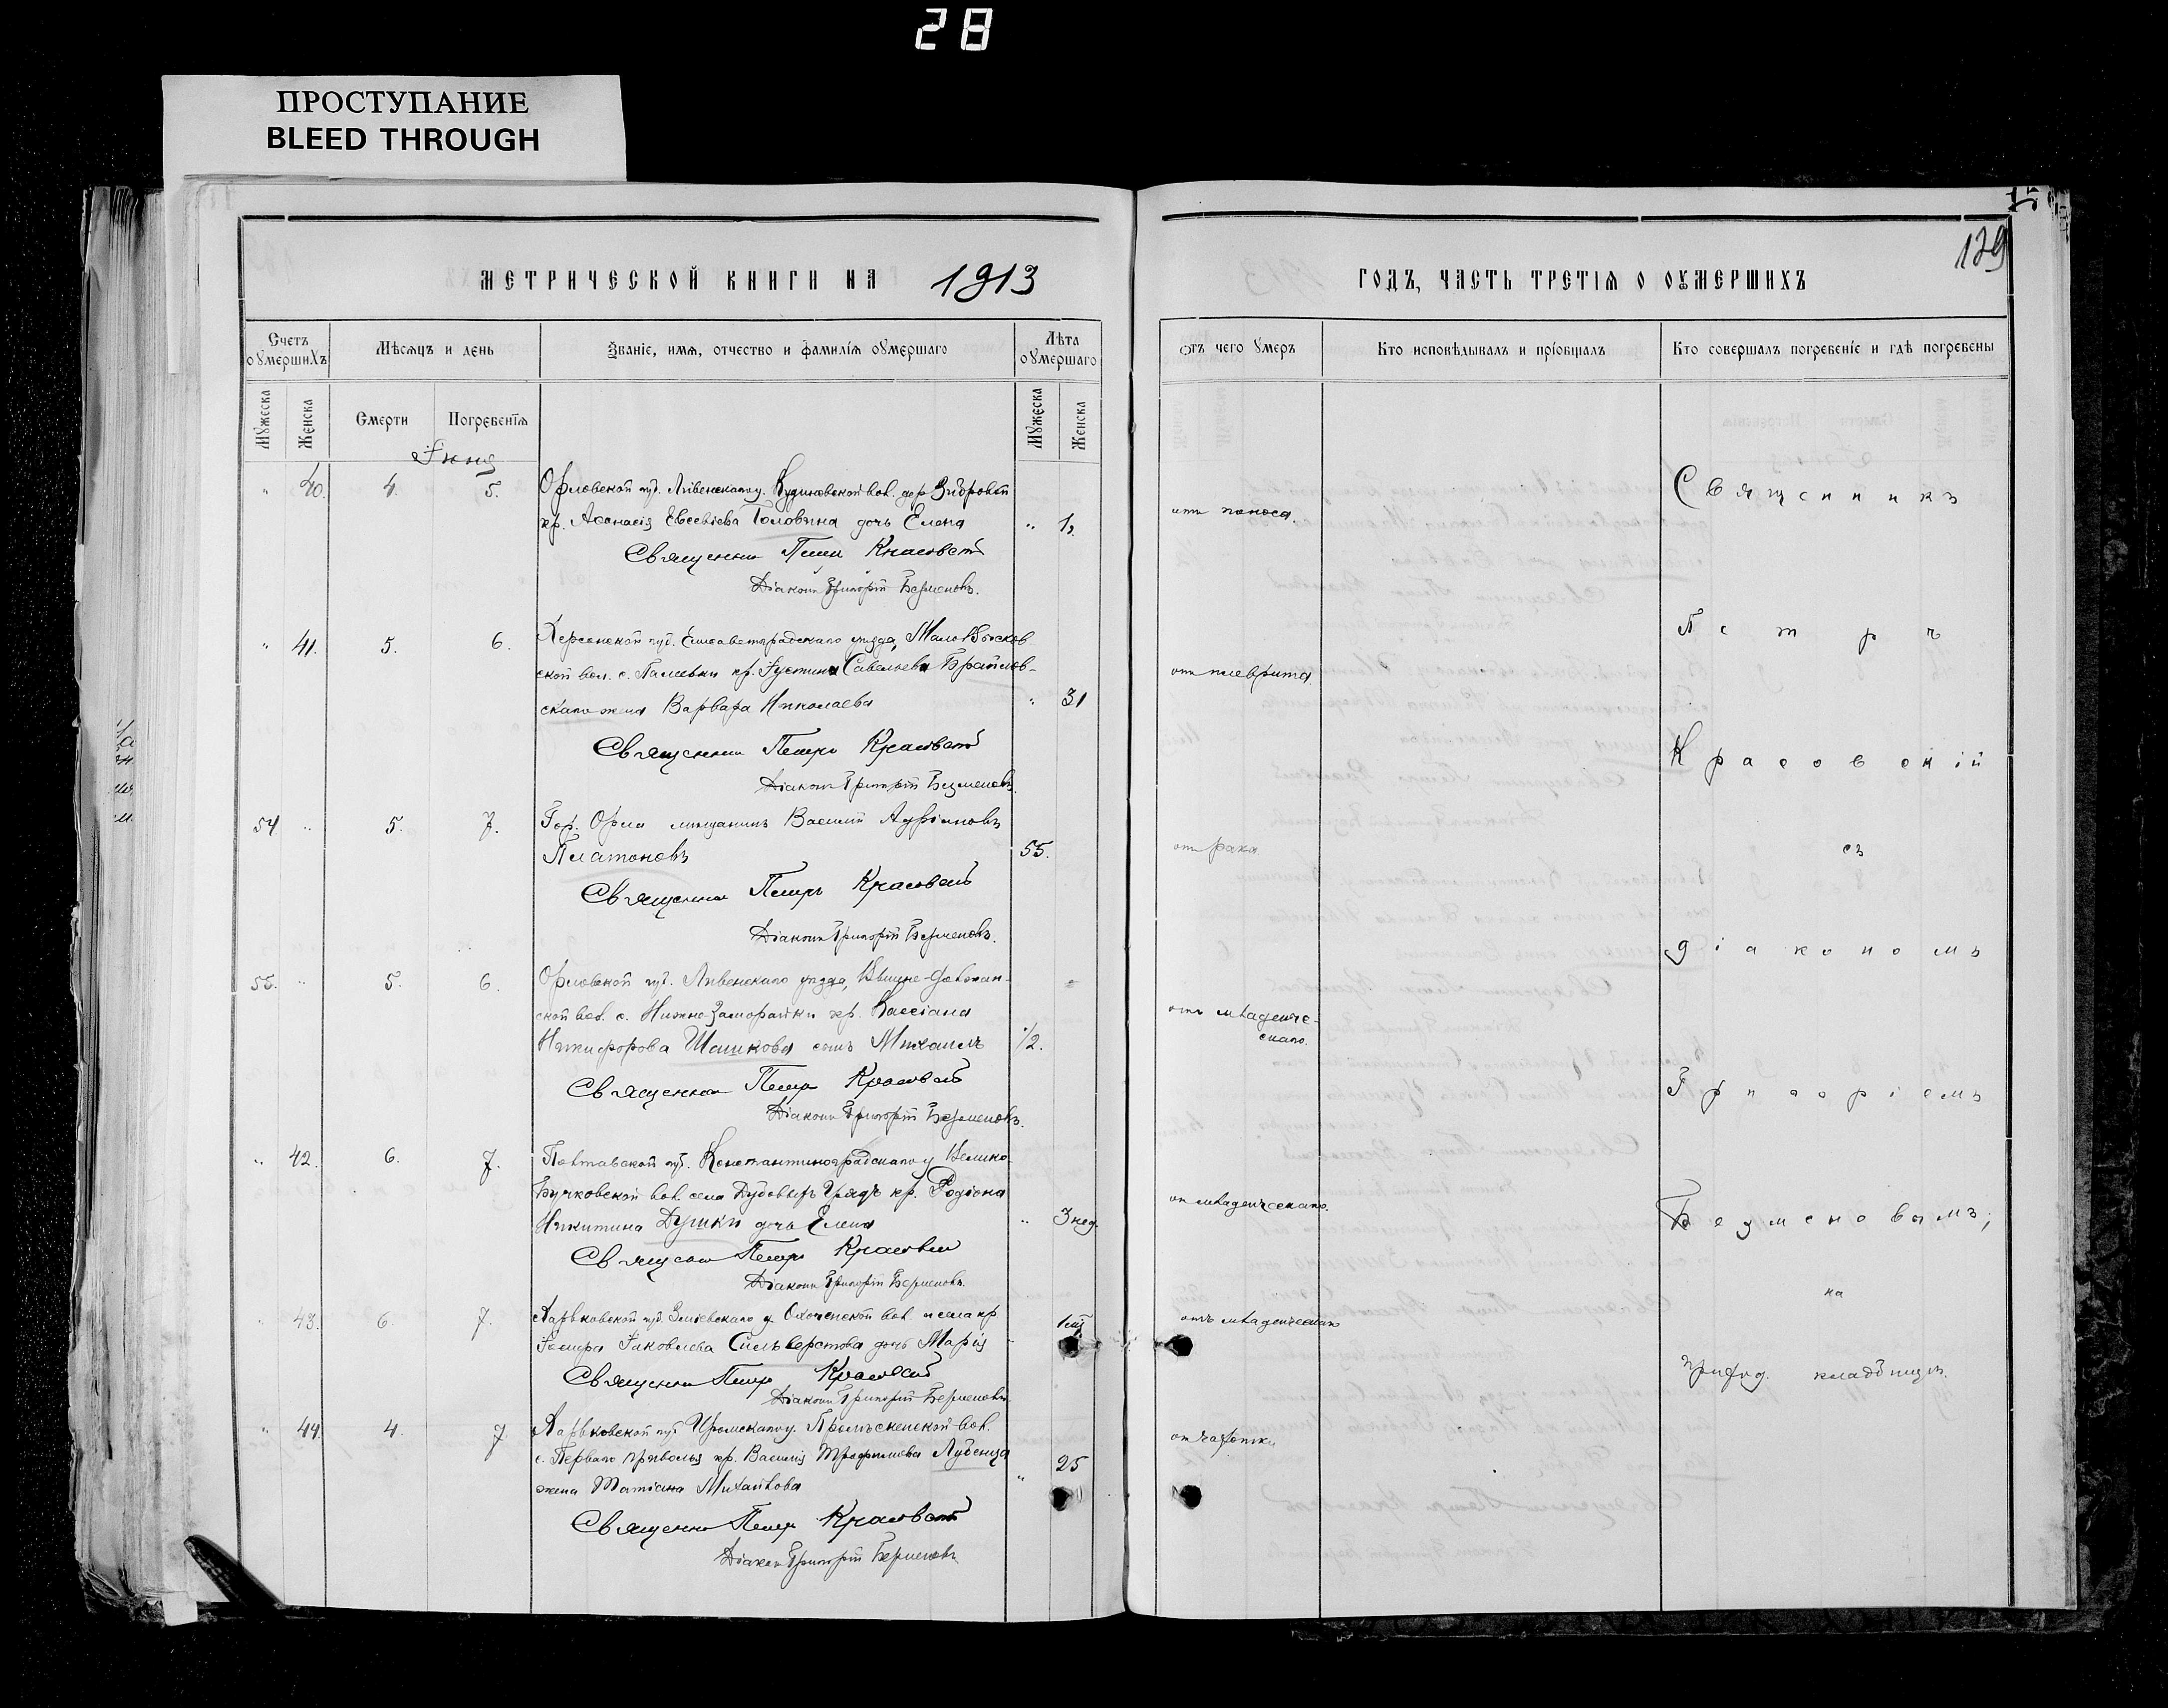 28
ПРОСТУПАНИЕ
BLEED THROUGH
139
МЕТРИЧЕСКОЙ КНИГИ НА 1913 ГОДЪ, ЧАСТЬ ТРЕТІЯ О ОУМЕРШИХЪ
Счетъ оумершихъ
Мѣсяцъ и день
Званіе, имя, отчество и фамилія оумершаго
Лѣта оумершаго
Отъ чего умеръ
Кто исповѣдывалъ и пріобщалъ
Кто совершалъ погребеніе и гдѣ погребены
Мужеска
Женска
Смерти
Погребенія
Мужеска
Женска
Іюня
„ 40. 4. 5. Орловской губ. Ливенскаго у. вол. дер.
кр. Аѳанасія Евсевіева Головина дочь Елена „ 1. отъ поноса.
Священникъ Петръ Красовскій
Діаконъ Григорій Безменовъ.
„ 41. 5. 6. Херсонской губ. Елисаветградскаго уѣзда, Мало-Высков
ской вол. с. кр. Іустина Савельева Браилов-
скаго жена Варвара Николаева „ 31 отъ плеврита.
Священникъ Петръ Красовскій
Діаконъ Григорій Безменовъ.
54 „ 5. 7. Гор. Орла мѣщанинъ Василій Адріановъ
Платоновъ 55. отъ рака.
Священникъ Петръ Красовскій
Діаконъ Григорій Безменовъ.
55. „ 5. 6. Орловской губ. Ливенскаго уѣзда,
ской вол. с. кр. Кассіана
Никифорова Шашкова сынъ Михаилъ 1/2. отъ младенче-
скаго.
Священникъ Петръ Красовскій
Діаконъ Григорій Безменовъ.
„ 42. 6. 7. Полтавской губ. Константиноградскаго у Велико-
Бучковской вол. села Дубовыхъ Грядъ кр. Родіона
Никитина Душки дочь Елена „ 3 нед. отъ младенческаго.
Священникъ Петръ Красовскій
Діаконъ Григорій Безменовъ.
„ 43. 6. 7. Харьковской губ. Зміевскаго у. Охоченской вол. и села кр
Іаковлева Сильверстова дочь Марія отъ младенческаго
Священникъ Петръ Красовскій
Діаконъ Григорій Безменовъ.
„ 44. 4. 7 Харьковской губ Изюмскаго у. вол.
с. Перваго Приволья кр. Василія Трофимова Лубенца
жена Татіана Михайлова „ 25 отъ чахотки
Священникъ Петръ Красовскій
Діаконъ Григорій Безменовъ
Священникъ
Петръ
Красовскій
съ
діакономъ
Григоріемъ
Безменовымъ;
на
приход. кладбищѣ.